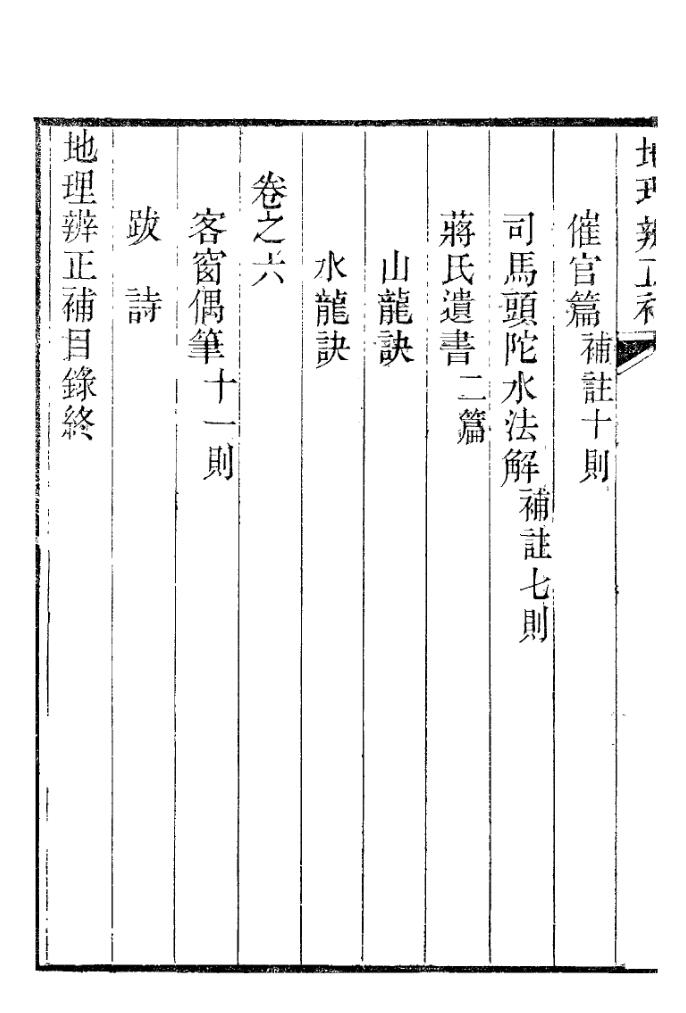 地理辨正補
催官篇補註十則
司馬頭陀水法解補註七則
蔣氏遺書二篇
山龍訣
水龍訣
卷之六
客窗偶筆十一則
跋詩
地理辨正補目錄終